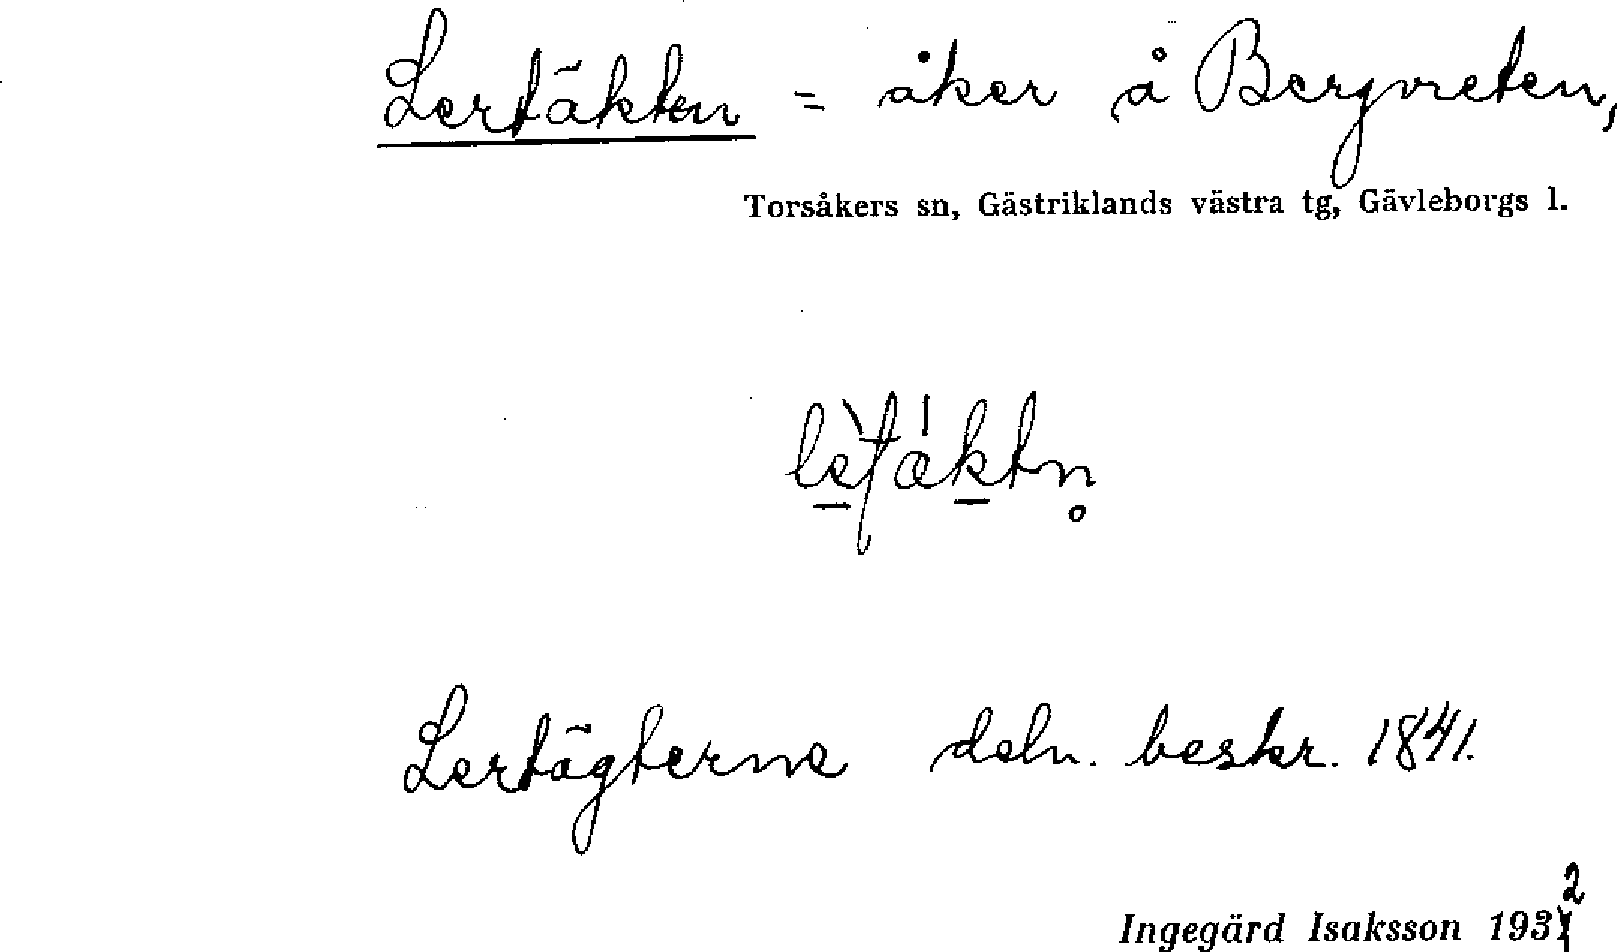 Lertäkten = åker å Bergvreten,
Torsåkers sn, Gästriklands västra tg, Gävleborgs l.
Lertägterne deln. beskr. 1841.
Ingegärd Isaksson 1932